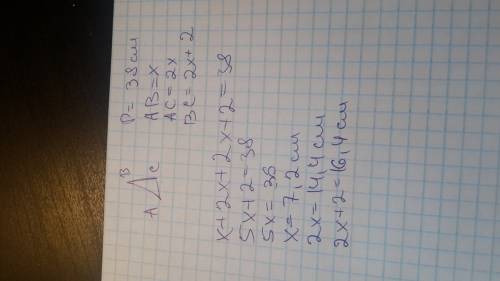 B
A C
P = 38 см
AB = x
AC = 2x
BC = 2x + 2
x + 2x + 2x + 2 = 38
5x + 2 = 38
5x = 36
x = 7,2 см
2x = 14,4 см
2x + 2 = 16,4 см